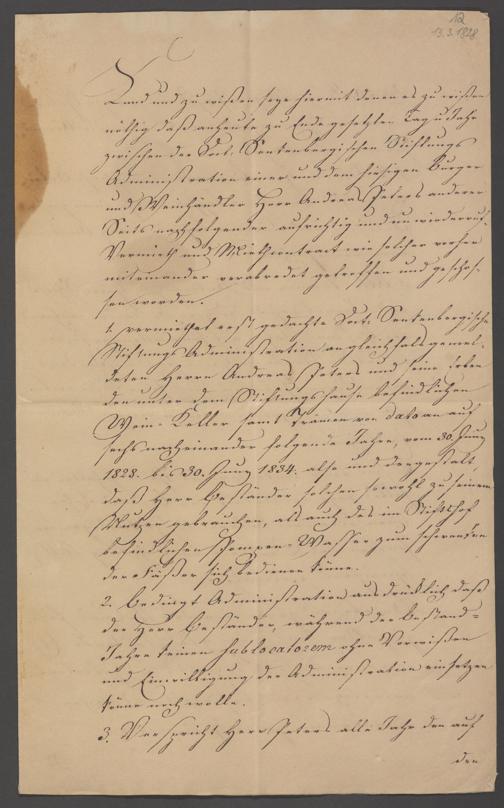 12
13.3.1828
Kund und zu wißen seye hiermit denen es zu wißen
nöthig daß anheute zu Ende gesetzten Tag u Jahr
zwischen der Doct. Senkenbergischen Stiftungs
Administration einer und dem hiesigen Burger
und Weinhändler Herr Andreas Peters anderer
Seits nachfolgender aufrichtig und unwiederruf-
Vermieth und Miethcontract wie solcher vorher
miteinander verabredet getroffen und geschlos-
sen worden.
1. vermiethet erst gedachte Doct: Senkenbergische
Stiftungs Administration an gleichfalls gemel-
deten Herrn Andreas Peters und seine Erben
den unter dem Stiftungshause befindlichen
Wein-Keller samt Kramen von dato an auf
sechs nacheinander folgende Jahre, vom 30. Juny
1828. bis 30. Juny 1834. also und dergestalt,
daß Herr Beständer solchen sowohl zu seinem
Nutzen gebrauchen, als auch des im Stiftshof
befindlichen Pompen-Wasser zum schwenken
der Fäßer sich bedienen könne.
2. Bedingt Administration ausdrücklich daß
der Herr Beständer, während der Bestand-
Jahre keinen Sublocatorem ohne Vorwißen
und Einwilligung der Administration einsetzen
könne noch wolle.
3. Verspricht Herr Peters alle Jahr den auf
den